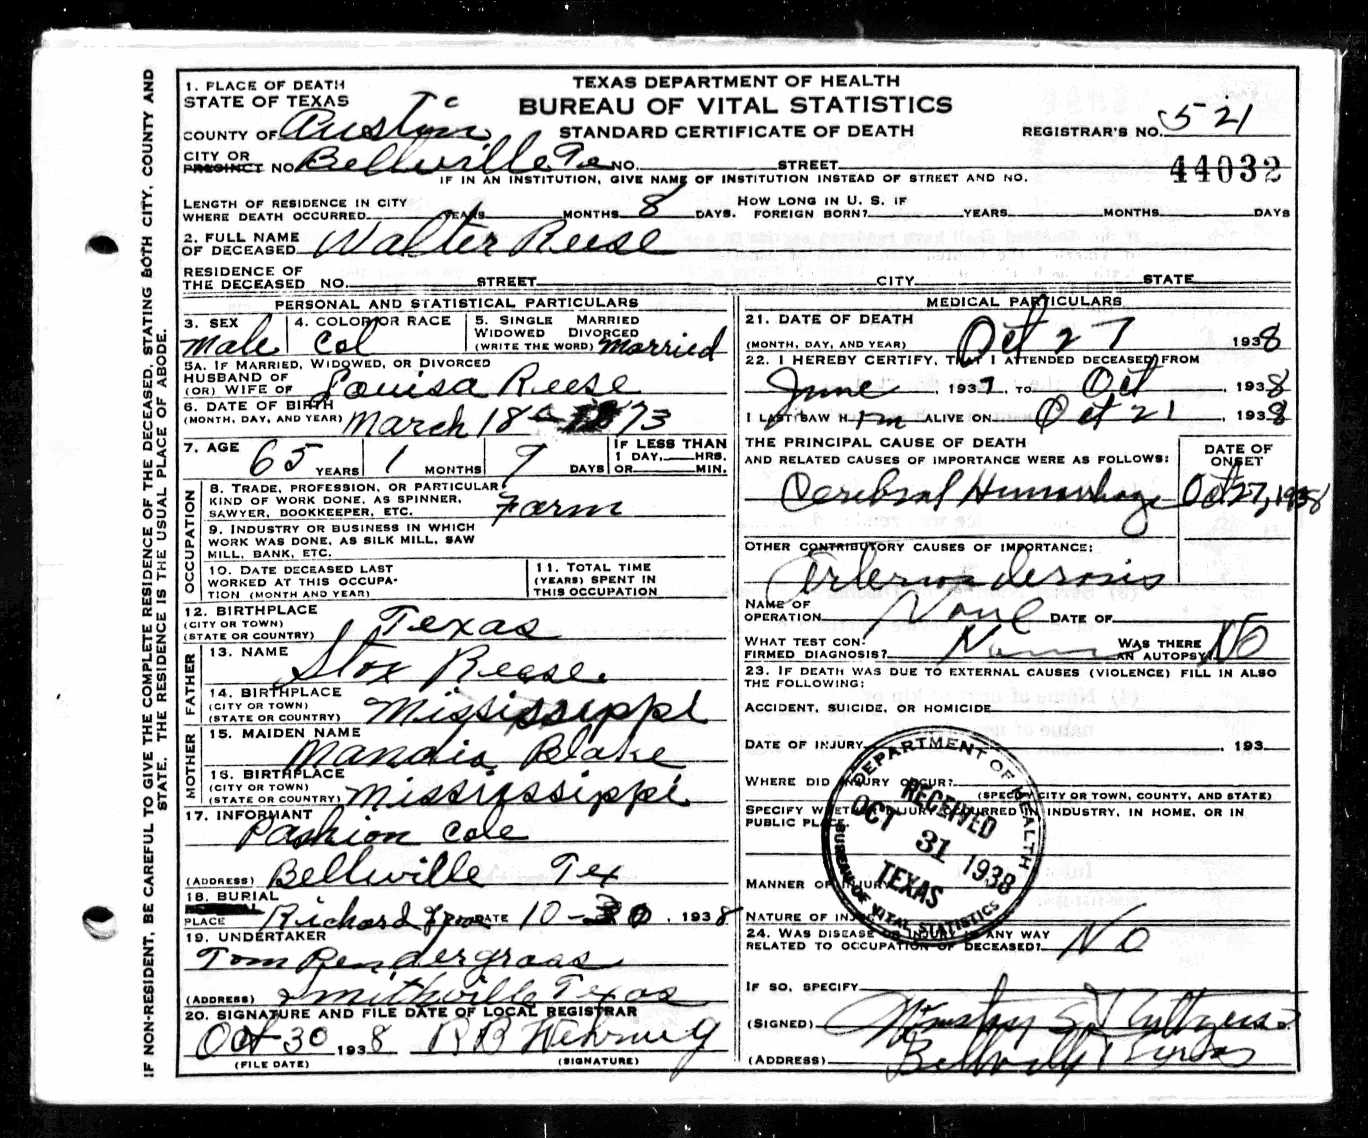 TEXAS DEPARTMENT OF HEALTH
BUREAU OF VITAL STATISTICS
STANDARD CERTIFICATE OF DEATH
REGISTRAR'S NO. 521
44032
1. PLACE OF DEATH
STATE OF TEXAS
COUNTY OF Austin
CITY OR PRECINCT NO. Bellville NO. STREET
IF IN AN INSTITUTION, GIVE NAME OF INSTITUTION INSTEAD OF STREET AND NO.
LENGTH OF RESIDENCE IN CITY
WHERE DEATH OCCURRED YEARS MONTHS 8 DAYS.
HOW LONG IN U. S. IF
FOREIGN BORN? YEARS MONTHS DAYS
2. FULL NAME
OF DECEASED Walter Reese
RESIDENCE OF
THE DECEASED NO. STREET CITY STATE
PERSONAL AND STATISTICAL PARTICULARS
3. SEX Male
4. COLOR OR RACE Col
5. SINGLE MARRIED
WIDOWED DIVORCED
(WRITE THE WORD) Married
5A. IF MARRIED, WIDOWED, OR DIVORCED
HUSBAND OF
(OR) WIFE OF Louisa Reese
6. DATE OF BIRTH
(MONTH, DAY, AND YEAR) March 18 1873
7. AGE 65 YEARS 1 MONTHS 9 DAYS
IF LESS THAN
1 DAY, HRS.
OR MIN.
OCCUPATION
8. TRADE, PROFESSION, OR PARTICULAR
KIND OF WORK DONE, AS SPINNER,
SAWYER, BOOKKEEPER, ETC. Farm
9. INDUSTRY OR BUSINESS IN WHICH
WORK WAS DONE, AS SILK MILL, SAW
MILL, BANK, ETC.
10. DATE DECEASED LAST
WORKED AT THIS OCCUPA-
TION (MONTH AND YEAR)
11. TOTAL TIME
(YEARS) SPENT IN
THIS OCCUPATION
12. BIRTHPLACE
(CITY OR TOWN)
(STATE OR COUNTRY) Texas
FATHER
13. NAME Reese
14. BIRTHPLACE
(CITY OR TOWN)
(STATE OR COUNTRY) Mississippi
MOTHER
15. MAIDEN NAME Blake
16. BIRTHPLACE
(CITY OR TOWN)
(STATE OR COUNTRY) Mississippi
17. INFORMANT Pashion Cole
(ADDRESS) Bellville Tex
18. BURIAL
PLACE Richard DATE 10-30, 1938
19. UNDERTAKER
Tom Pendergrass
(ADDRESS) Smithville Texas
20. SIGNATURE AND FILE DATE OF LOCAL REGISTRAR
Oct 30 1938 R B Wehring
(FILE DATE) (SIGNATURE)
MEDICAL PARTICULARS
21. DATE OF DEATH
(MONTH, DAY, AND YEAR) Oct 27 1938
22. I HEREBY CERTIFY, THAT I ATTENDED DECEASED FROM
June, 1937, TO Oct, 1938
I LAST SAW H im ALIVE ON Oct 21, 1938
THE PRINCIPAL CAUSE OF DEATH
AND RELATED CAUSES OF IMPORTANCE WERE AS FOLLOWS:
DATE OF
ONSET
Cerebral Hemorrhage Oct 27, 1938
OTHER CONTRIBUTORY CAUSES OF IMPORTANCE:
NAME OF
OPERATION None DATE OF
WHAT TEST CON-
FIRMED DIAGNOSIS? None
WAS THERE
AN AUTOPSY? No
23. IF DEATH WAS DUE TO EXTERNAL CAUSES (VIOLENCE) FILL IN ALSO
THE FOLLOWING:
ACCIDENT, SUICIDE, OR HOMICIDE
DATE OF INJURY , 193
WHERE DID INJURY OCCUR?
(SPECIFY CITY OR TOWN, COUNTY, AND STATE)
SPECIFY WHETHER INJURY OCCURRED IN INDUSTRY, IN HOME, OR IN
PUBLIC PLACE.
MANNER OF INJURY
NATURE OF INJURY
24. WAS DISEASE OR INJURY IN ANY WAY
RELATED TO OCCUPATION OF DECEASED? No
IF SO, SPECIFY
(SIGNED)
(ADDRESS) Bellville Texas
DEPARTMENT OF HEALTH
RECEIVED
OCT 31 1938
TEXAS
BUREAU OF VITAL STATISTICS
IF NON-RESIDENT, BE CAREFUL TO GIVE THE COMPLETE RESIDENCE OF THE DECEASED, STATING BOTH CITY, COUNTY AND
STATE. THE RESIDENCE IS THE USUAL PLACE OF ABODE.